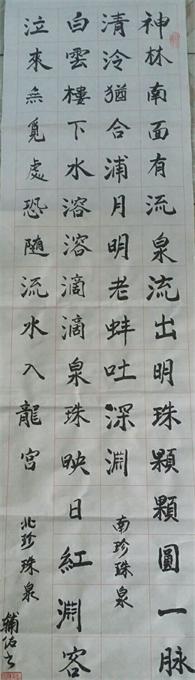 神林南面有流泉流出明珠顆顆圓一脉
清泠猶合浦月明老蚌吐深淵
南珍珠泉
白雲樓下水溶溶滴滴泉珠映日紅淵客
泣來無覓處恐随流水入龍宮
北珍珠泉